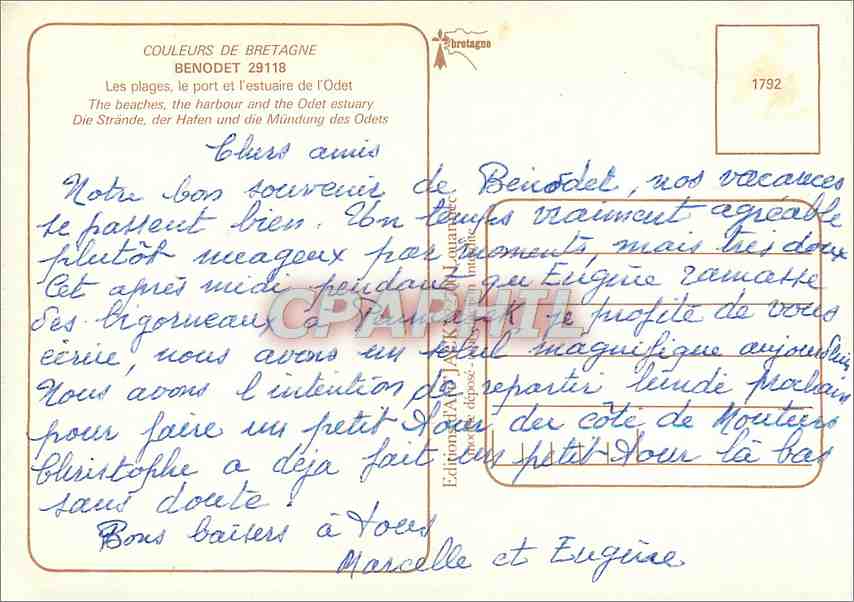 COULEURS DE BRETAGNE
BENODET 29118
Les plages, le port et l'estuaire de l'Odet
The beaches, the harbour and the Odet estuary
Die Strände, der Hafen und die Mündung des Odets
bretagne
1792
Chers amis
Notre bon souvenir de Benodet, nos vacances
se passent bien. Un temps vraiment agréable
plutôt nuageux par moments, mais très doux
Cet après midi pendant qu'Eugène ramasse
des bigorneaux à je profite de vous
écrire, nous avons un soleil magnifique aujourd'hui
Nous avons l'intention de repartir lundi prochain
pour faire un petit tour du côté de Moutiers
Christophe a déja fait un petit tour là bas
sans doute.
Bons baisers à tous
Marcelle et Eugène
Editions d'Art JACK Louannec
déposé
CPARHIL